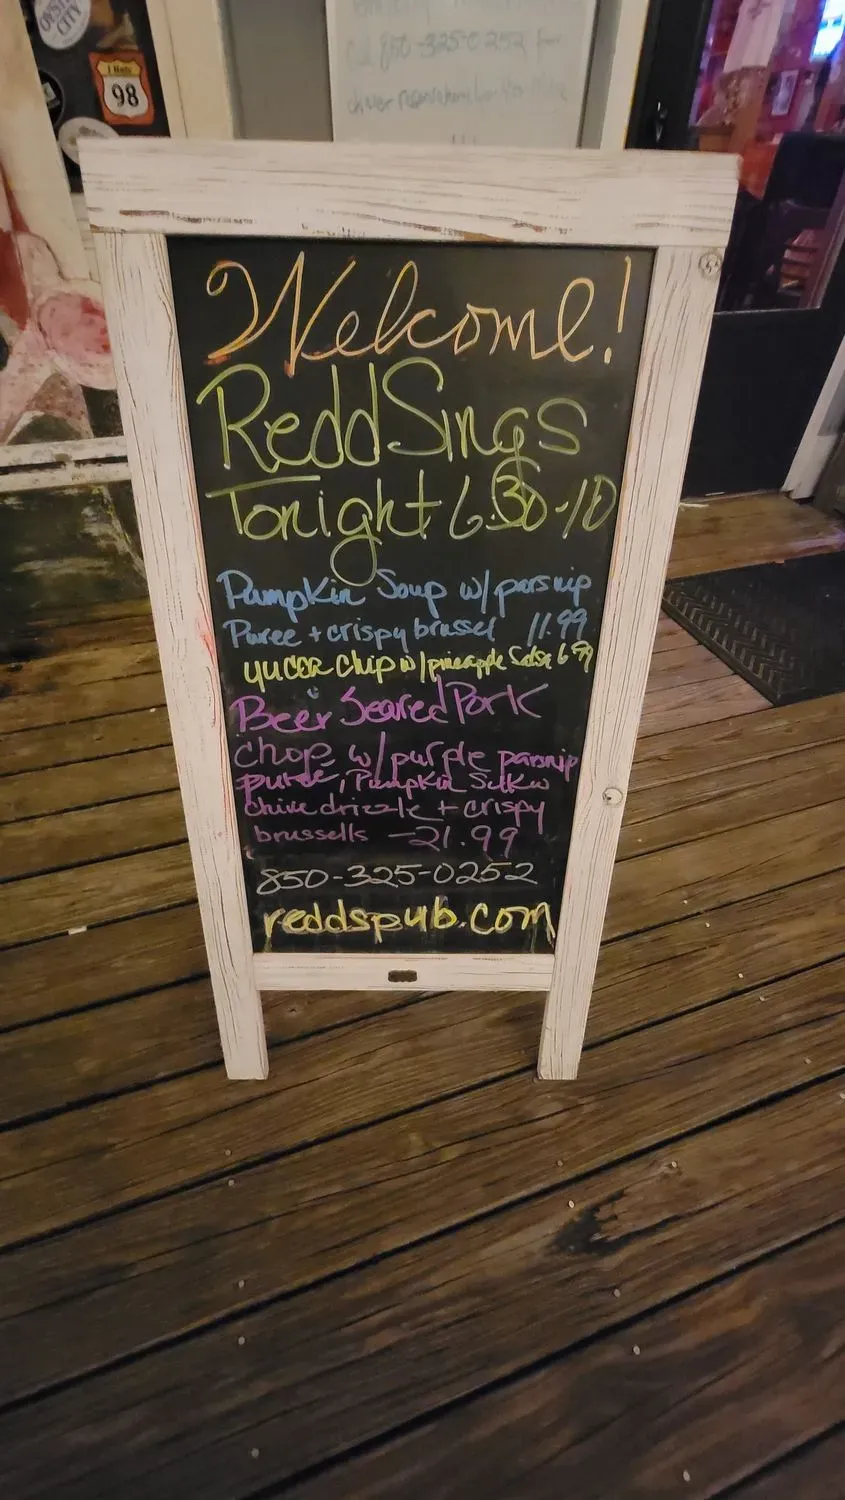 OYSTER
CITY
98
850-325-0252 for
Welcome!
Redd Sings
Tonight 6:30-10
Pumpkin Soup w/ parsnip
Puree + crispy brussel 11.99
YUCCA Chip w/ pineapple Salsa 6.99
Beer Seared Pork
Chop w/ purple parsnip
puree, Pumpkin Silk w
Chive drizzle + crispy
brussells - 21.99
850-325-0252
reddspub.com